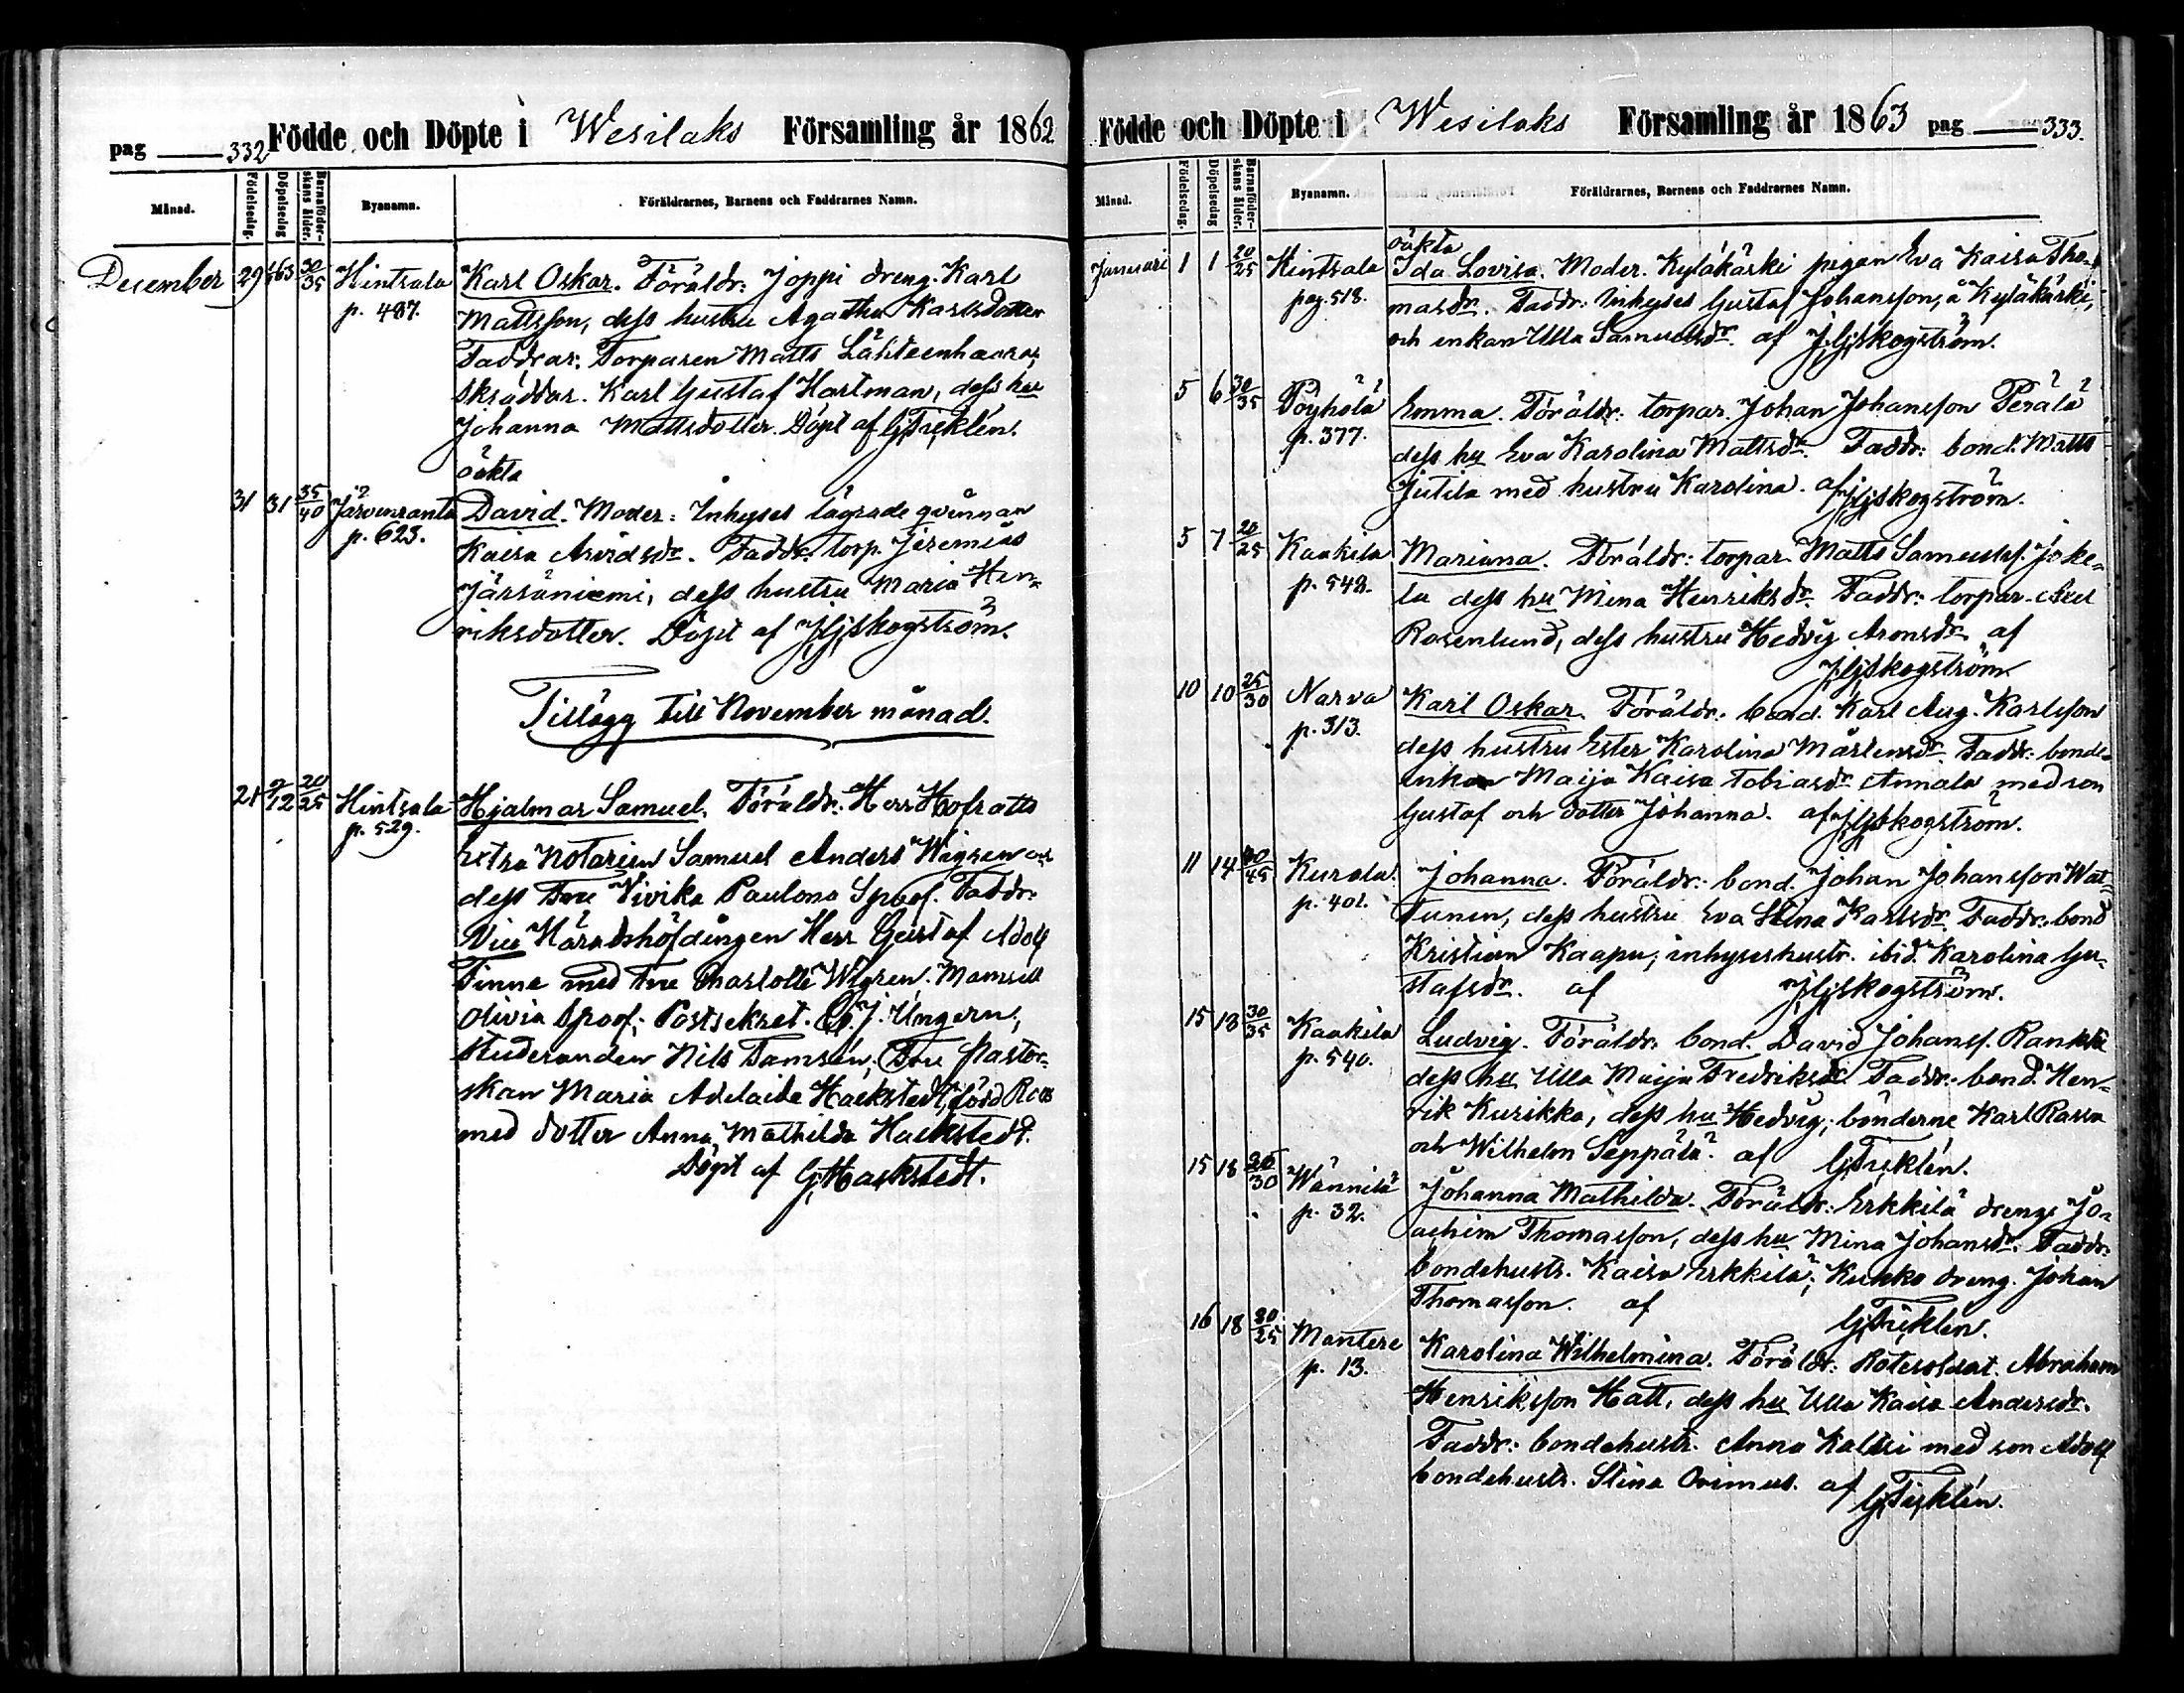 pag 332 Födde och Döpte i Wesilaks Församling år 1862
Månad. Födelsedag. Döpelsedag Barnaföderskans ålder. Byanamn. Föräldrarnes, Barnens och Faddrarnes Namn.
December 29 1/63 30/35 Hintsala Karl Oskar. Föräldr: Joppi dreng. Karl
p. 487. Mattsson, dess hustru Agatha Karlsdotter
Faddrar: Torparen Matts Lähteenhaara,
skräddar. Karl Gustaf Hartman, dess hu
Johanna Mattsdotter. Döpt af G. Fr. Eklén.
oäkta
31 31 35/40 Järvenranta David. Moder: Inhyses lägrade qvinnan
p. 623. Kaisa Arvidsdr. Faddr. torp. Jeremias
Järsäniemi, dess hustru Maria Hen-
riksdotter. Döpt af J. Hj. Skogström.
Tillägg till November månad.
21 9/12 20/25 Hintsala Hjalmar Samuel. Föräldr: Herr Hofrätts
p. 529. Extra Notarien Samuel Anders Wigren och
dess Fru Vivika Paulona Spoof. Faddr:
Vice Häradshöfdingen Herr Gustaf Adolf
Finne med Fru Charlotte Wigren. Mamsell
Olivia Spoof; Postsekret. J. Ungern,
Studeranden Nils Tamsén, Fru Pastor-
skan Maria Adelaide Hackstedt, född Roos
med dotter Anna Mathilda Hackstedt.
Döpt af G. Hackstedt.
Födde och Döpte i Wesilaks Församling år 1863 pag 333.
Månad. Födelsedag. Döpelsedag Barnaföderskans ålder. Byanamn. Föräldrarnes, Barnens och Faddrarnes Namn.
oäkta
Januari 1 1 20/25 Hintsala Ida Lovisa. Moder. Kyläkärki pigan Eva Kaisa Tho-
pag. 518. masdr. Faddr: Inhyses Gustaf Johansson, å Kyläkärki,
och enkan Ulla Samuelsdr. af J. Hj. Skogström.
5 6 30/35 Pöyhölä Emma. Föräldr: torpar. Johan Johansson Perälä
p. 377. dess hu Eva Karolina Mattsdr. Faddr: bond. Matts
Jutila med hustru Karolina. af J. Hj. Skogström.
5 7 20/25 Kaakila Mariana. Föräldr: torpar. Matts Samuelss. Joke-
p. 542. la dess hu Mina Henriksdr. Faddr: torpar. Axel
Rosenlund, dess hustru Hedvig Aronsdr. af
J. Hj. Skogström
10 10 25/30 Narva Karl Oskar. Föräldr. bond. Karl Aug. Karlsson
p. 313. dess hustru Ester Karolina Mårtensdr. Faddr: bonde-
enkan Maija Kaisa Tobiasdr Annala med son
Gustaf och dotter Johanna. af J. Hj. Skogström.
11 14 40/45 Kurala Johanna. Föräldr: bond. Johan Johansson Wat-
p. 401. tunen, dess hustru Eva Stina Karlsdr. Faddr: bond
Kristian Kaapu; inhyseshustr. ibid. Karolina Gu-
stafsdr. af J. Hj. Skogström.
15 18 30/35 Kaakila Ludvig. Föräldr: bond. David Johanss. Rankki
p. 540. dess hu Ulla Maija Fredriksdr. Faddr: bond. Hen-
rik Kurikka, dess hu Hedvig; bönderne Karl Rassa
och Wilhelm Seppälä. af G. Fr. Eklén.
15 18 25/30 Wännilä Johanna Mathilda. Föräldr: Erkkilä dreng Jo-
p. 32. achim Thomasson, dess hu Mina Johansdr. Faddr:
bondehustr. Kaisa Erkkilä; Kukko dreng. Johan
Thomasson. af G. Fr. Eklén.
16 18 20/25 Mantere Karolina Wilhelmina. Föräldr: Rotesoldat. Abraham
p. 13. Henriksson Hatt, dess hu Ulla Kaisa Andersdr.
Faddr: bondehustr. Anna Kaltsi med son Adolf
bondehustr. Stina Orimus. af G. Fr. Eklén.